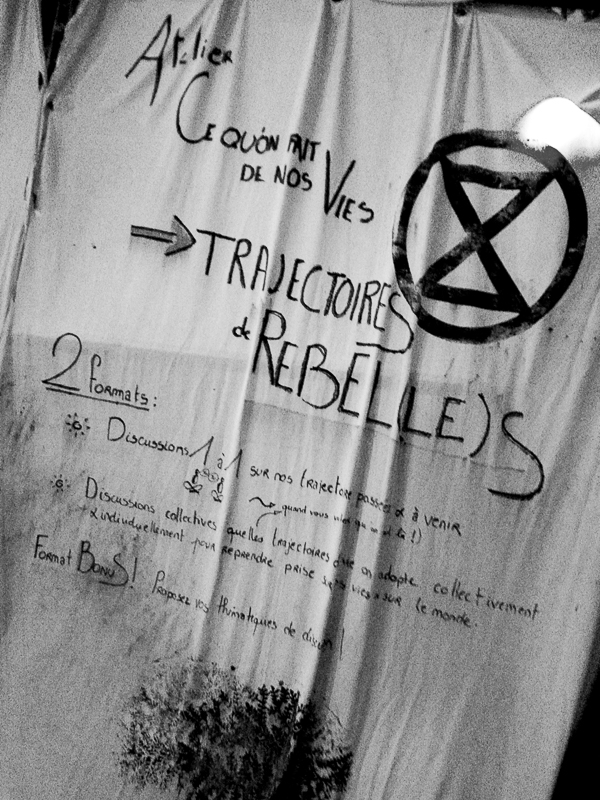 Atelier
CE QU'ON FAIT
DE NOS VIES
→ TRAJECTOIRES
de REBEL(LE)S
2 formats :
Discussions 1 à 1 sur nos trajectoire passées & à venir
quand vous
Discussions collectives quelles trajectoires on adopte, collectivement
& individuellement pour reprendre prise sur vies & sur le monde.
Format BONUS! Proposez vos thématiques de !